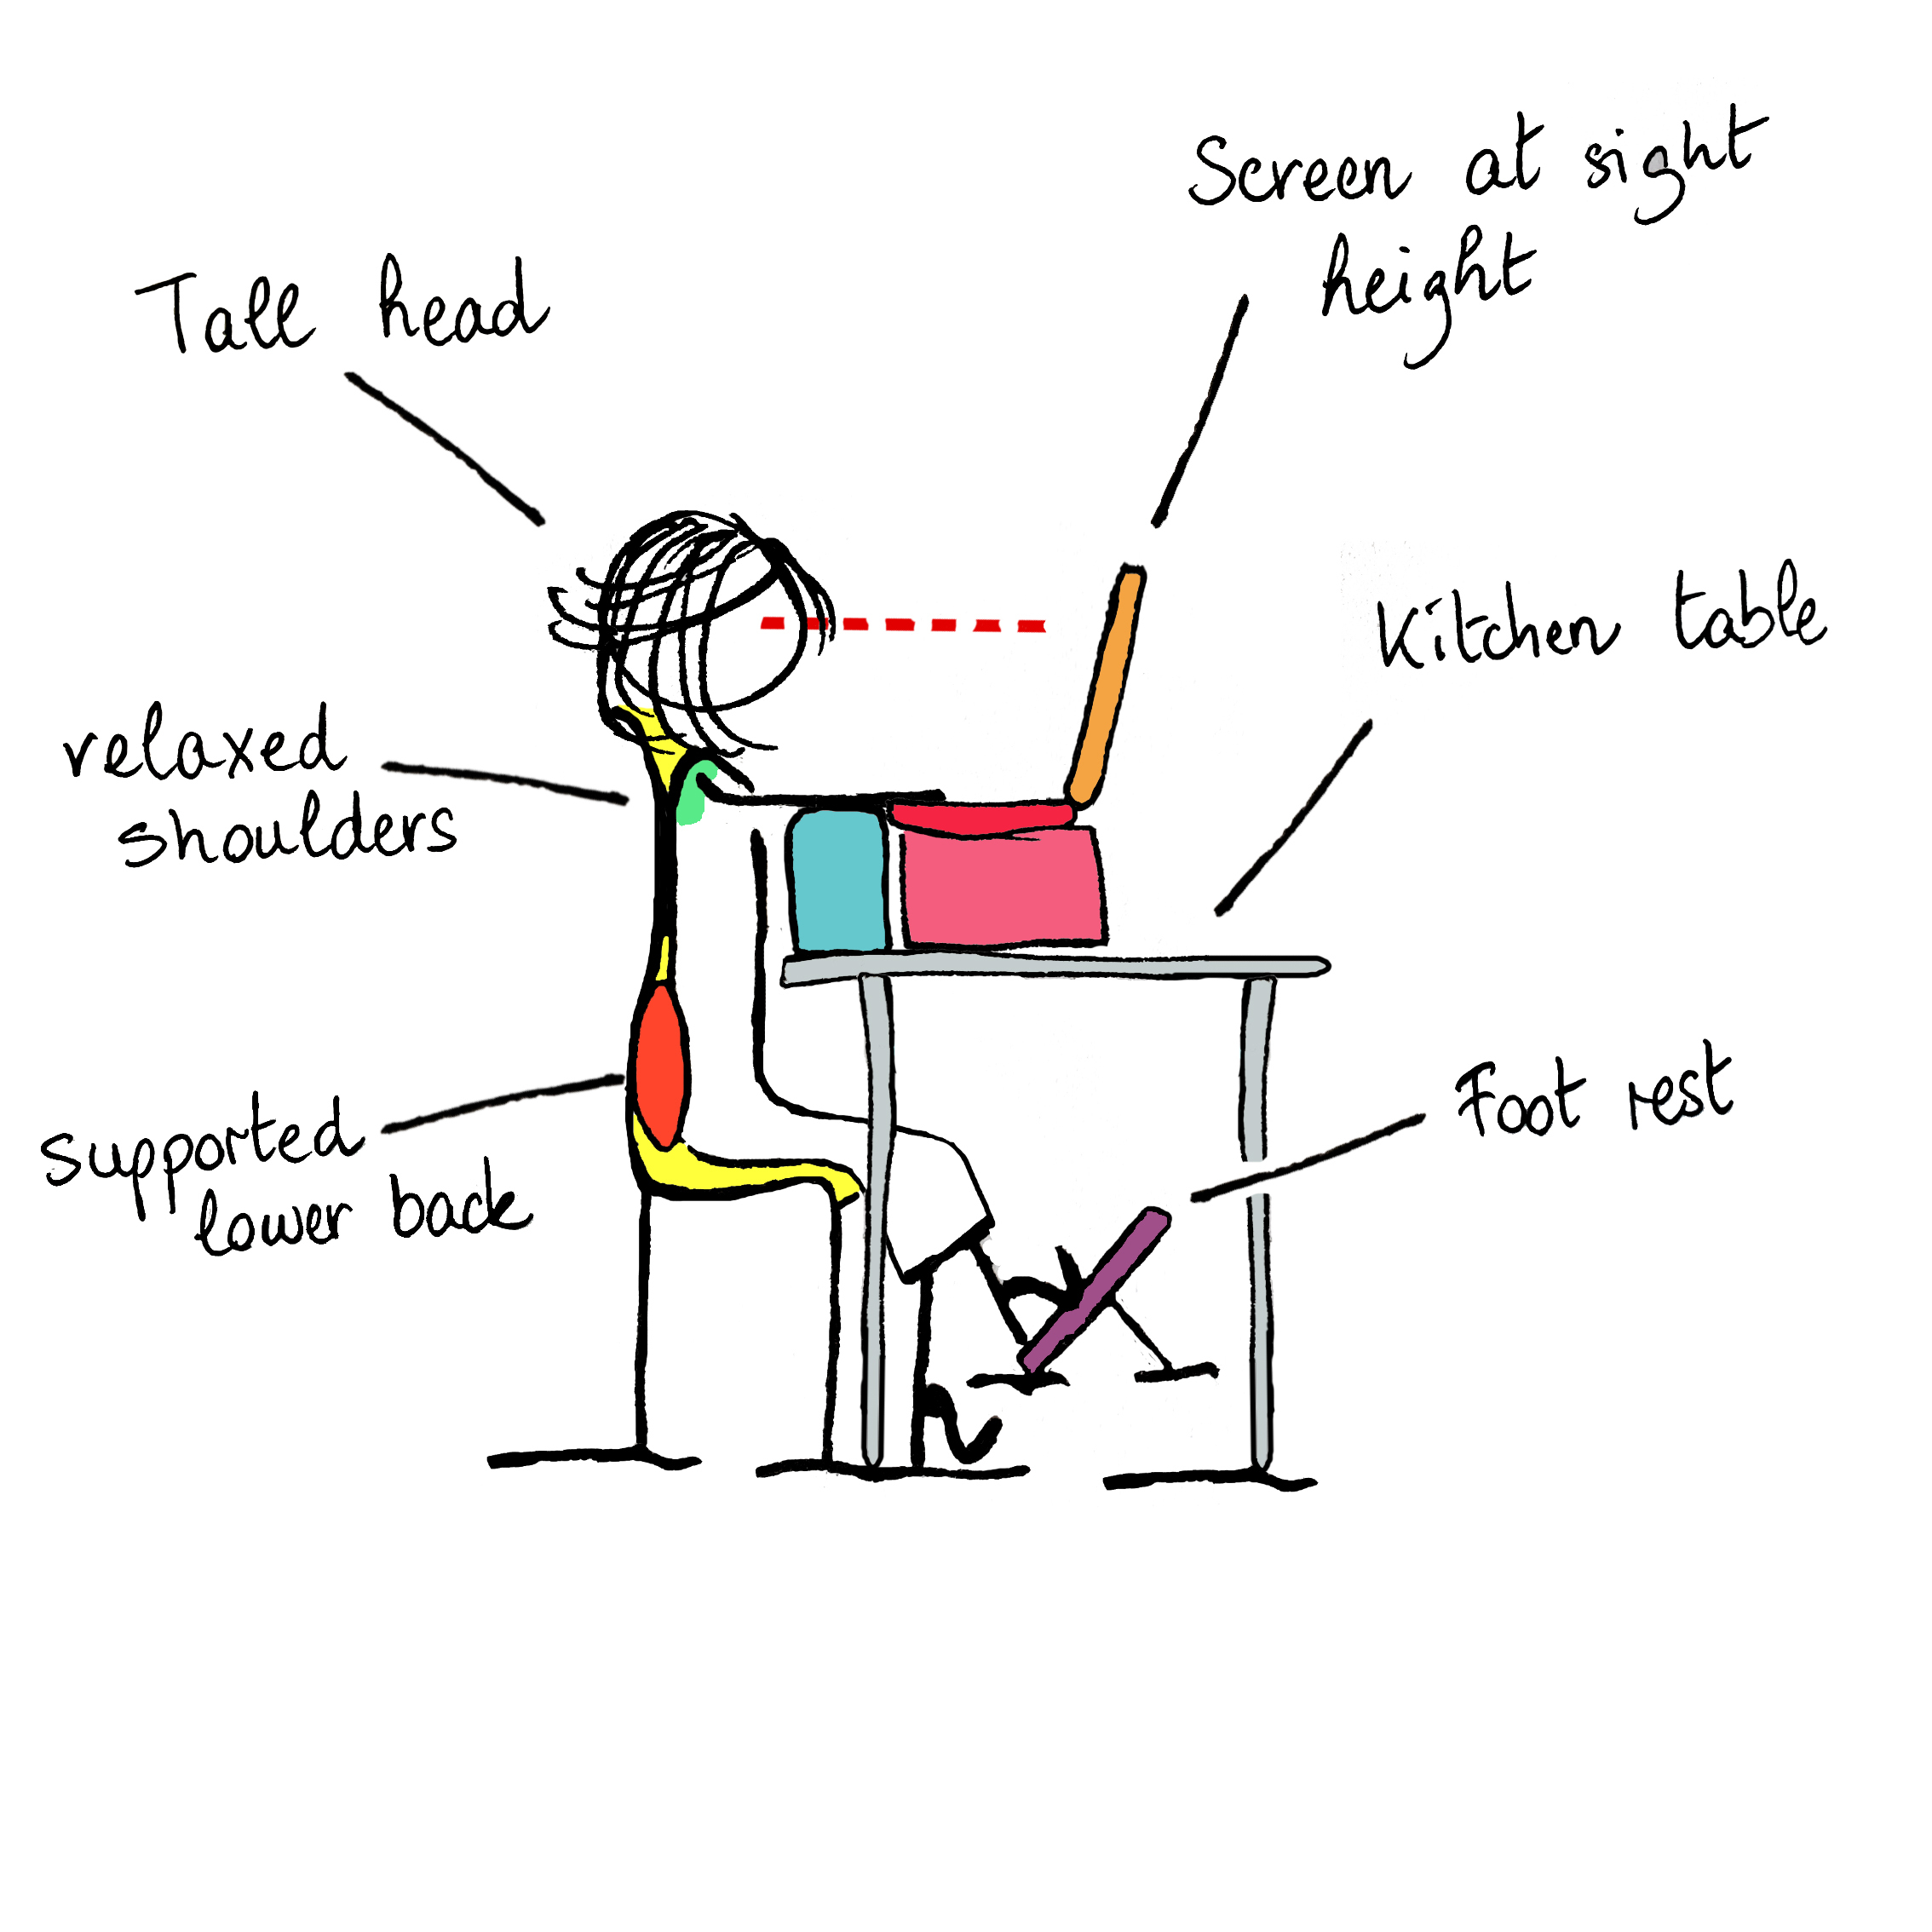 Screen at sight
height
Tall head
Kitchen table
relaxed
shoulders
Foot rest
supported
lower back